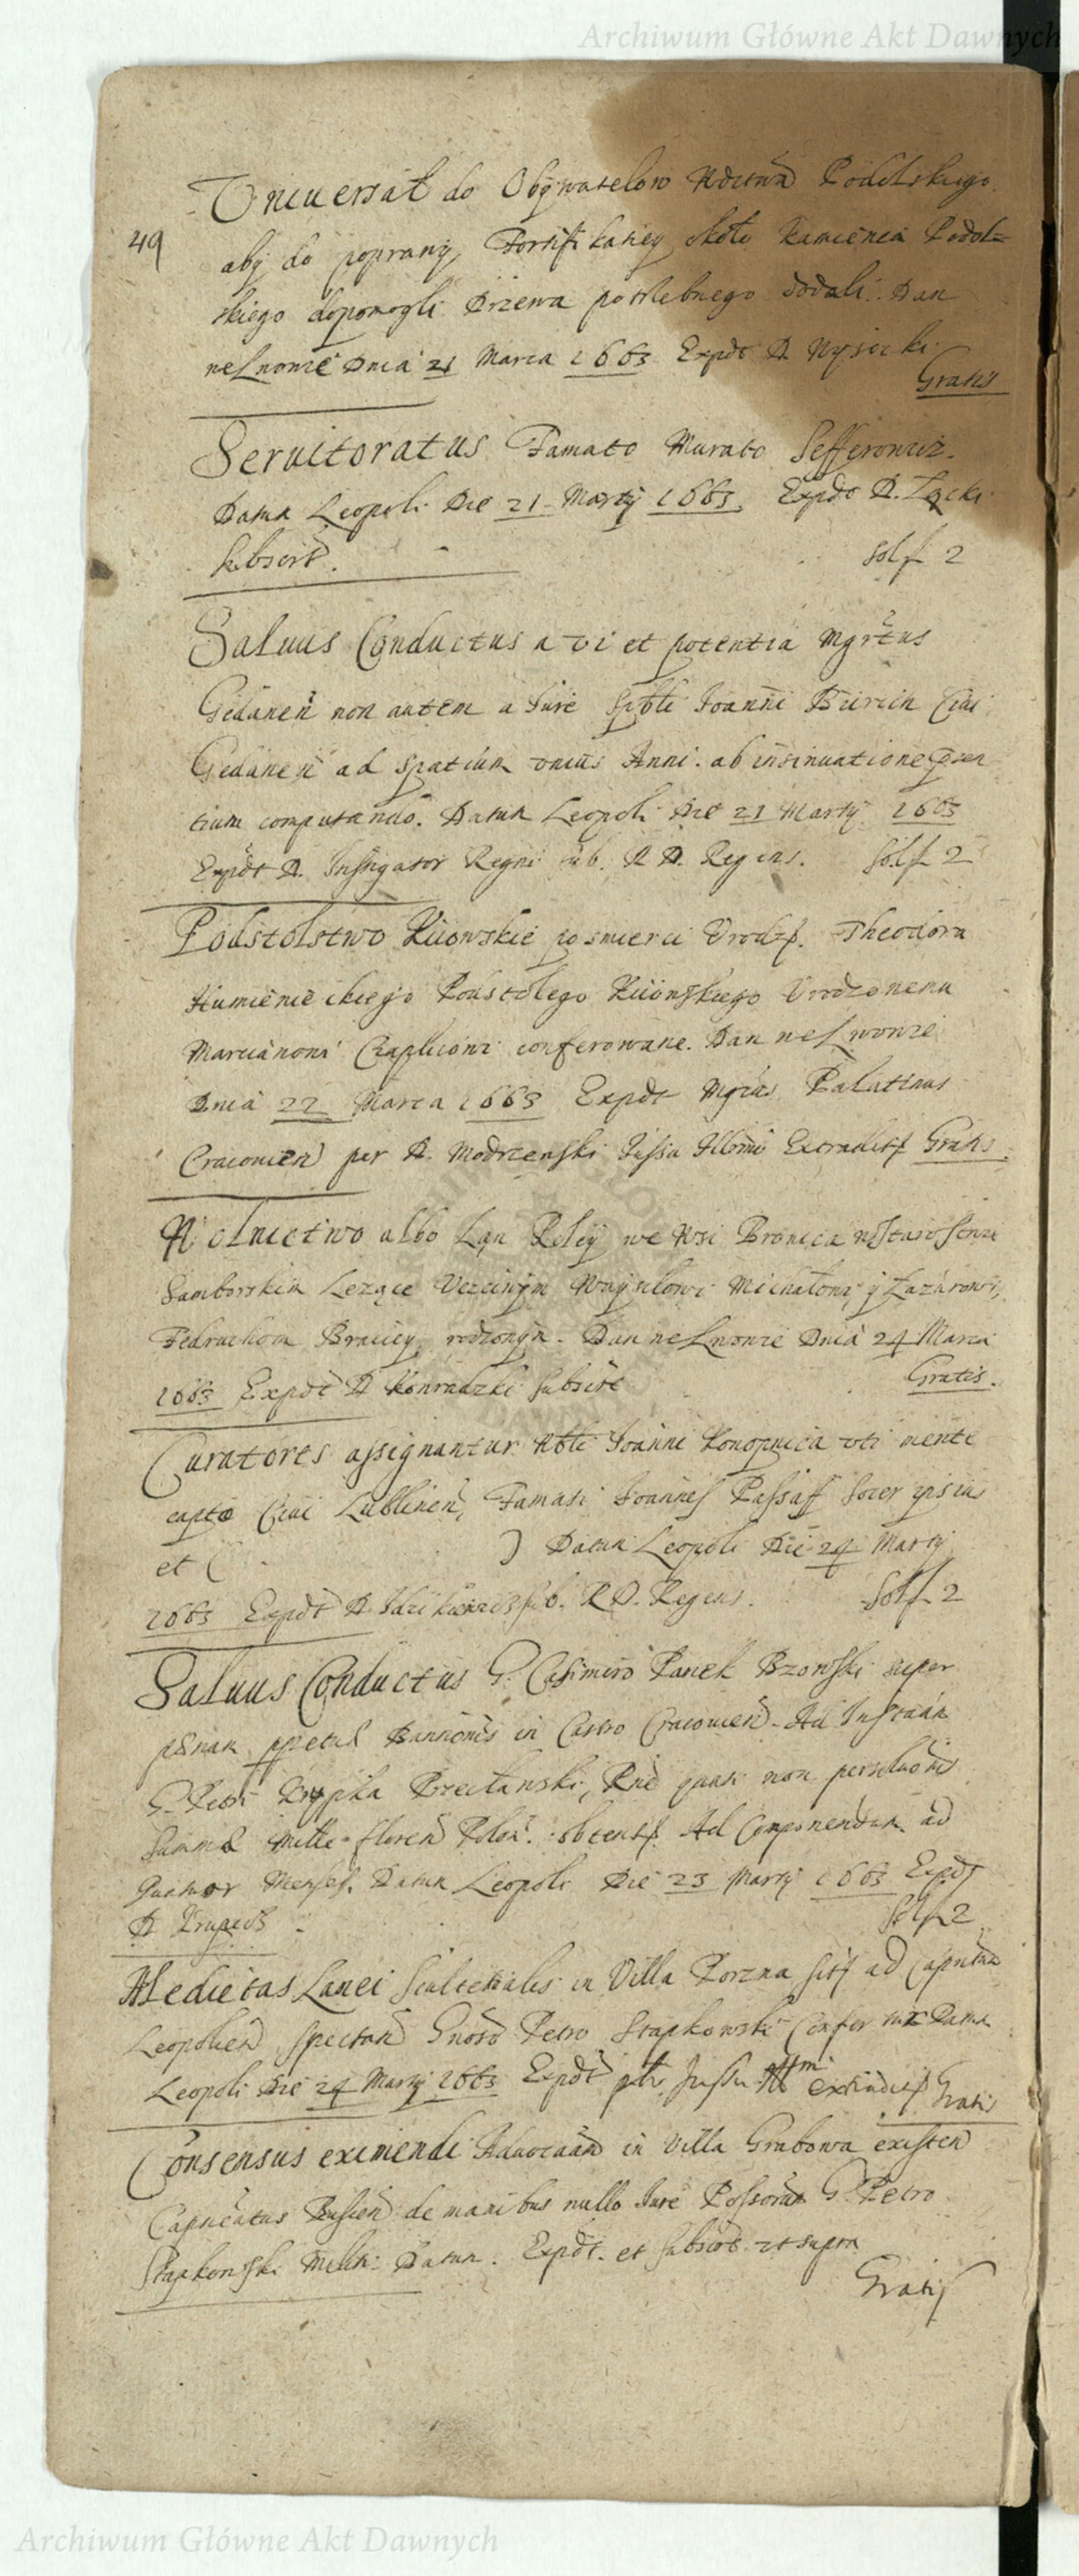 Archiwum Główne Akt Dawnych
Vniuersał do Obywatelow Wdztwa Podolskiego
49
aby do poprawy Fortifikatiey około Kamienca Podol=
skiego dopomogli Drzewa potrzebnego dodali. Dan
we Lwowie Dnia 21 Marca 1663 Expdt D. Wysocki
Gratis
Seruitoratus Famato Murato Sefferowicz.
Datum Leopoli Die 21 Martij 1663. Expdt D. Łącki
subscrib. Sol f 2
Saluus Conductus a vi et potentia Mgrtus
Gedanen non autem a Jure Spbli Joanni Ciui
Gedanen ad spatium vnius Anni ab insinuatione
tium computando. Datum Leopoli Die 21 Martij 1663
Expdt D. Instigator Regni sub. R D. Regens. Sol f 2
Podstolstwo Kiiowskie po smierci Vrodz. Theodora
Humienieckiego Podstolego Kiiowskiego Vrodzonemu
Marcianowi Czaplicowi conferowane. Dan we Lwowie
Dnia 22 Marca 1663 Expdt Mgcus Palatinus
Cracouien per D. Modrzewski Jussu Illmi Extradit Gratis.
Wolnictwo albo Łan Roley we Wsi Bronica w Starostwie
Samborskim Lezące Vczciwym Wasyłowi Michałowi, y Łazarowi,
Fedruchom Braciey rodzonym. Dan we Lwowie Dnia 24 Marca
1663 Expdt D Konradzki subscrt Gratis.
Curatores assignantur Nbli Joanni Konopnica vti mente
capto Ciui Lublinen, Famati Joannes Passaff Socer ipsius
et ( ) Datum Leopoli Die 24 Martij
1663 Expdt D. sub. R D. Regens. Sol f 2
Saluus Conductus G. Casimiro Panek Brzowski super
pœnam ppetuæ Bannionis in Castro Cracouien. Ad Instaam
G. Petri Krypka Przecławski, Rne quasi non persolutionis
Summæ Mille floren Polon. obtent. Ad Componendum ad
Quatuor Menses. Datum Leopoli Die 23 Martij 1663 Expdt
D Krupecki Sol f 2
Medietas Lanei Scultetialis in Villa Porzna sit ad Capitatum
Leopolien spectan Gnoso Petro Stapkowski Confertur Datum
Leopoli Die 24 Martij 1663 Expdt ptr Jussu Illmi extradit Gratis
Consensus eximendi Aduocatiam in Villa Grabowa existen
Capneatus Buscen de manibus nullo Jure Possorum G. Petro
Stapkowski Militi Datum. Expdt. et subscrib. vt supra
Gratis
Archiwum Główne Akt Dawnych